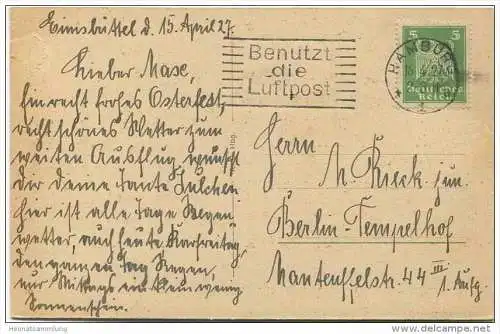 Eimsbüttel d. 15. April 27.
Lieber Mase,
Ein recht frohes Osterfest,
recht schönes Wetter zum
weiten Ausflug wünscht
dir deine Tante Julchen
hier ist alle Tage Regen
wetter, auch heute Karfreitag,
den ganzen Tag Regen,
nur Mittags ein klein wenig
Sonnenschein.
Benutzt
die
Luftpost
HAMBURG
5 5
Deutsches
Reich
Herrn
M. Rieck jun.
Berlin-Tempelhof
Manteuffelstr. 44 III
1. Aufg.
Heimatsammlung.de
www.delcampe.net